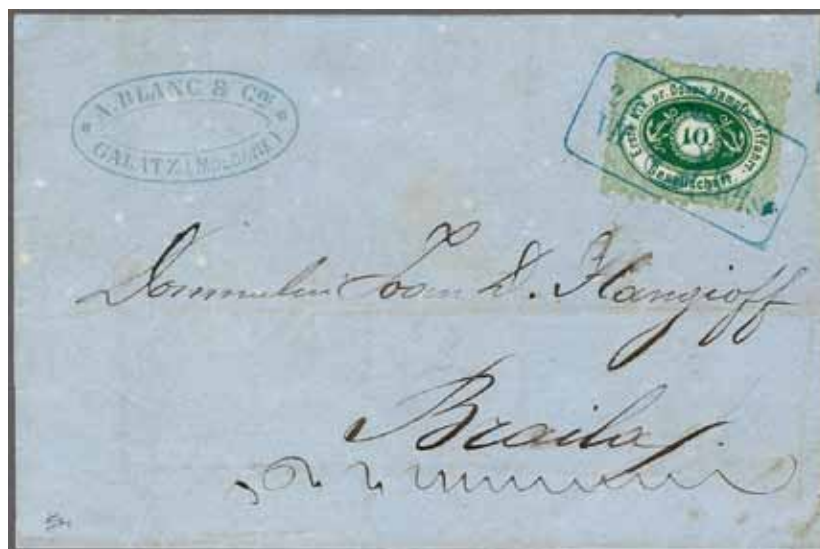 A. BLANC & Cie
GALATZ (MOLDAVIE)
Erste k.k. pr. Donau Dampfschiffahrt-
Gesellschaft.
10.
Domnului Ioan D. Hangioff
Braila